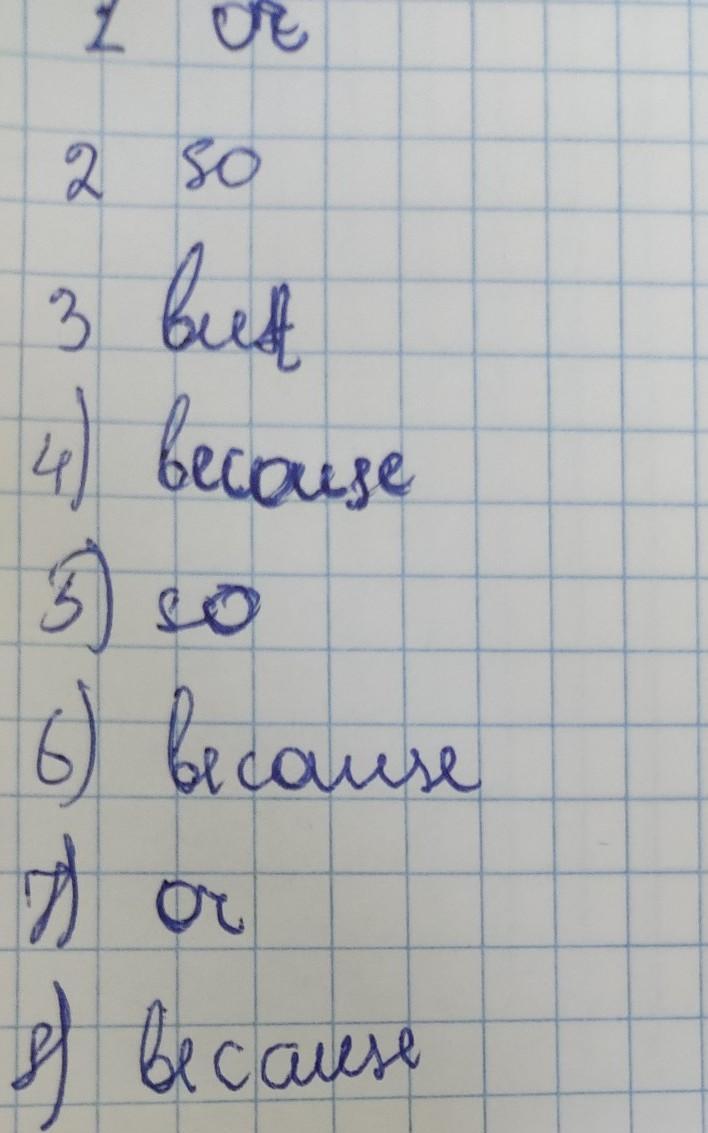 1 or
2 so
3 but
4) because
5) so
6) because
7) or
8) because